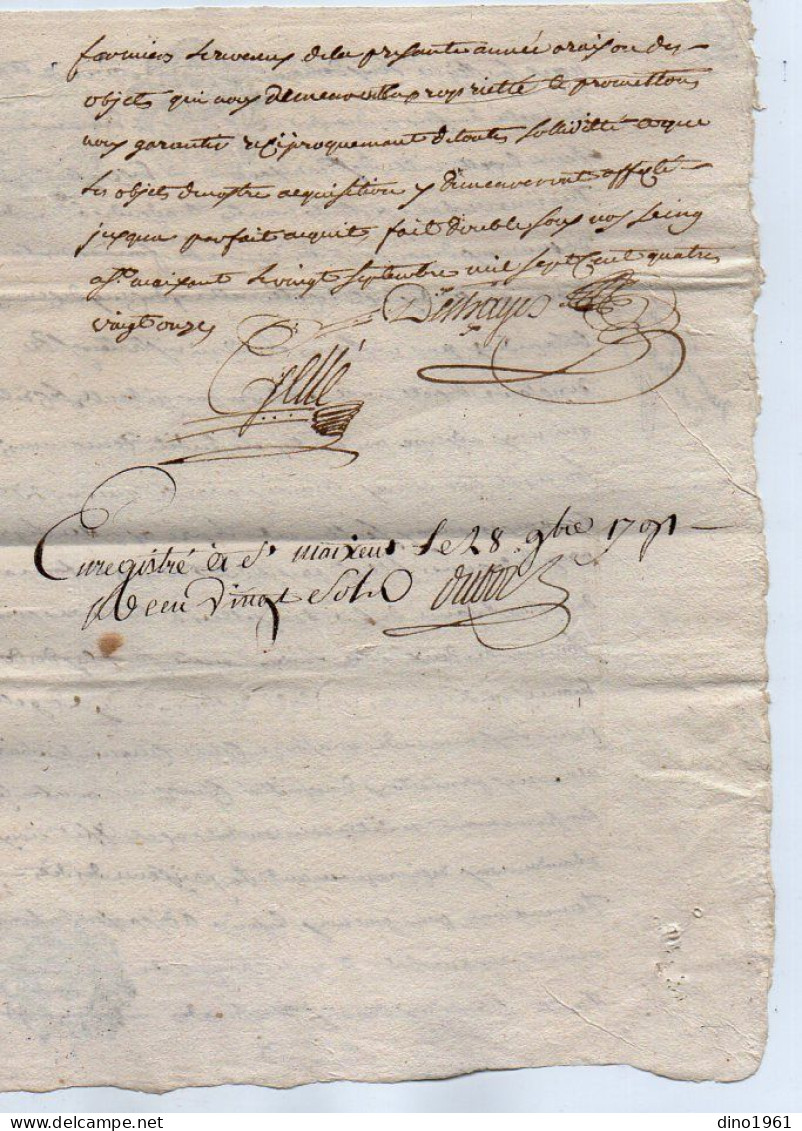 fermiers les revenus de la presante année araison des
objets qui nous demeurent en propriette & promettons
nous garantir reciproquement de toute solidité et que
les objets de nostre acquisition y demeureront affecté
jusqua parfait acquit fait double sous nos seing
a St maixant le vingt septembre mil sept cent quatre
vingt onze
Deshayes
Gellé
Enregistré à St maixent le 28 9bre 1791
vingt sols
delcampe.net
dino1961